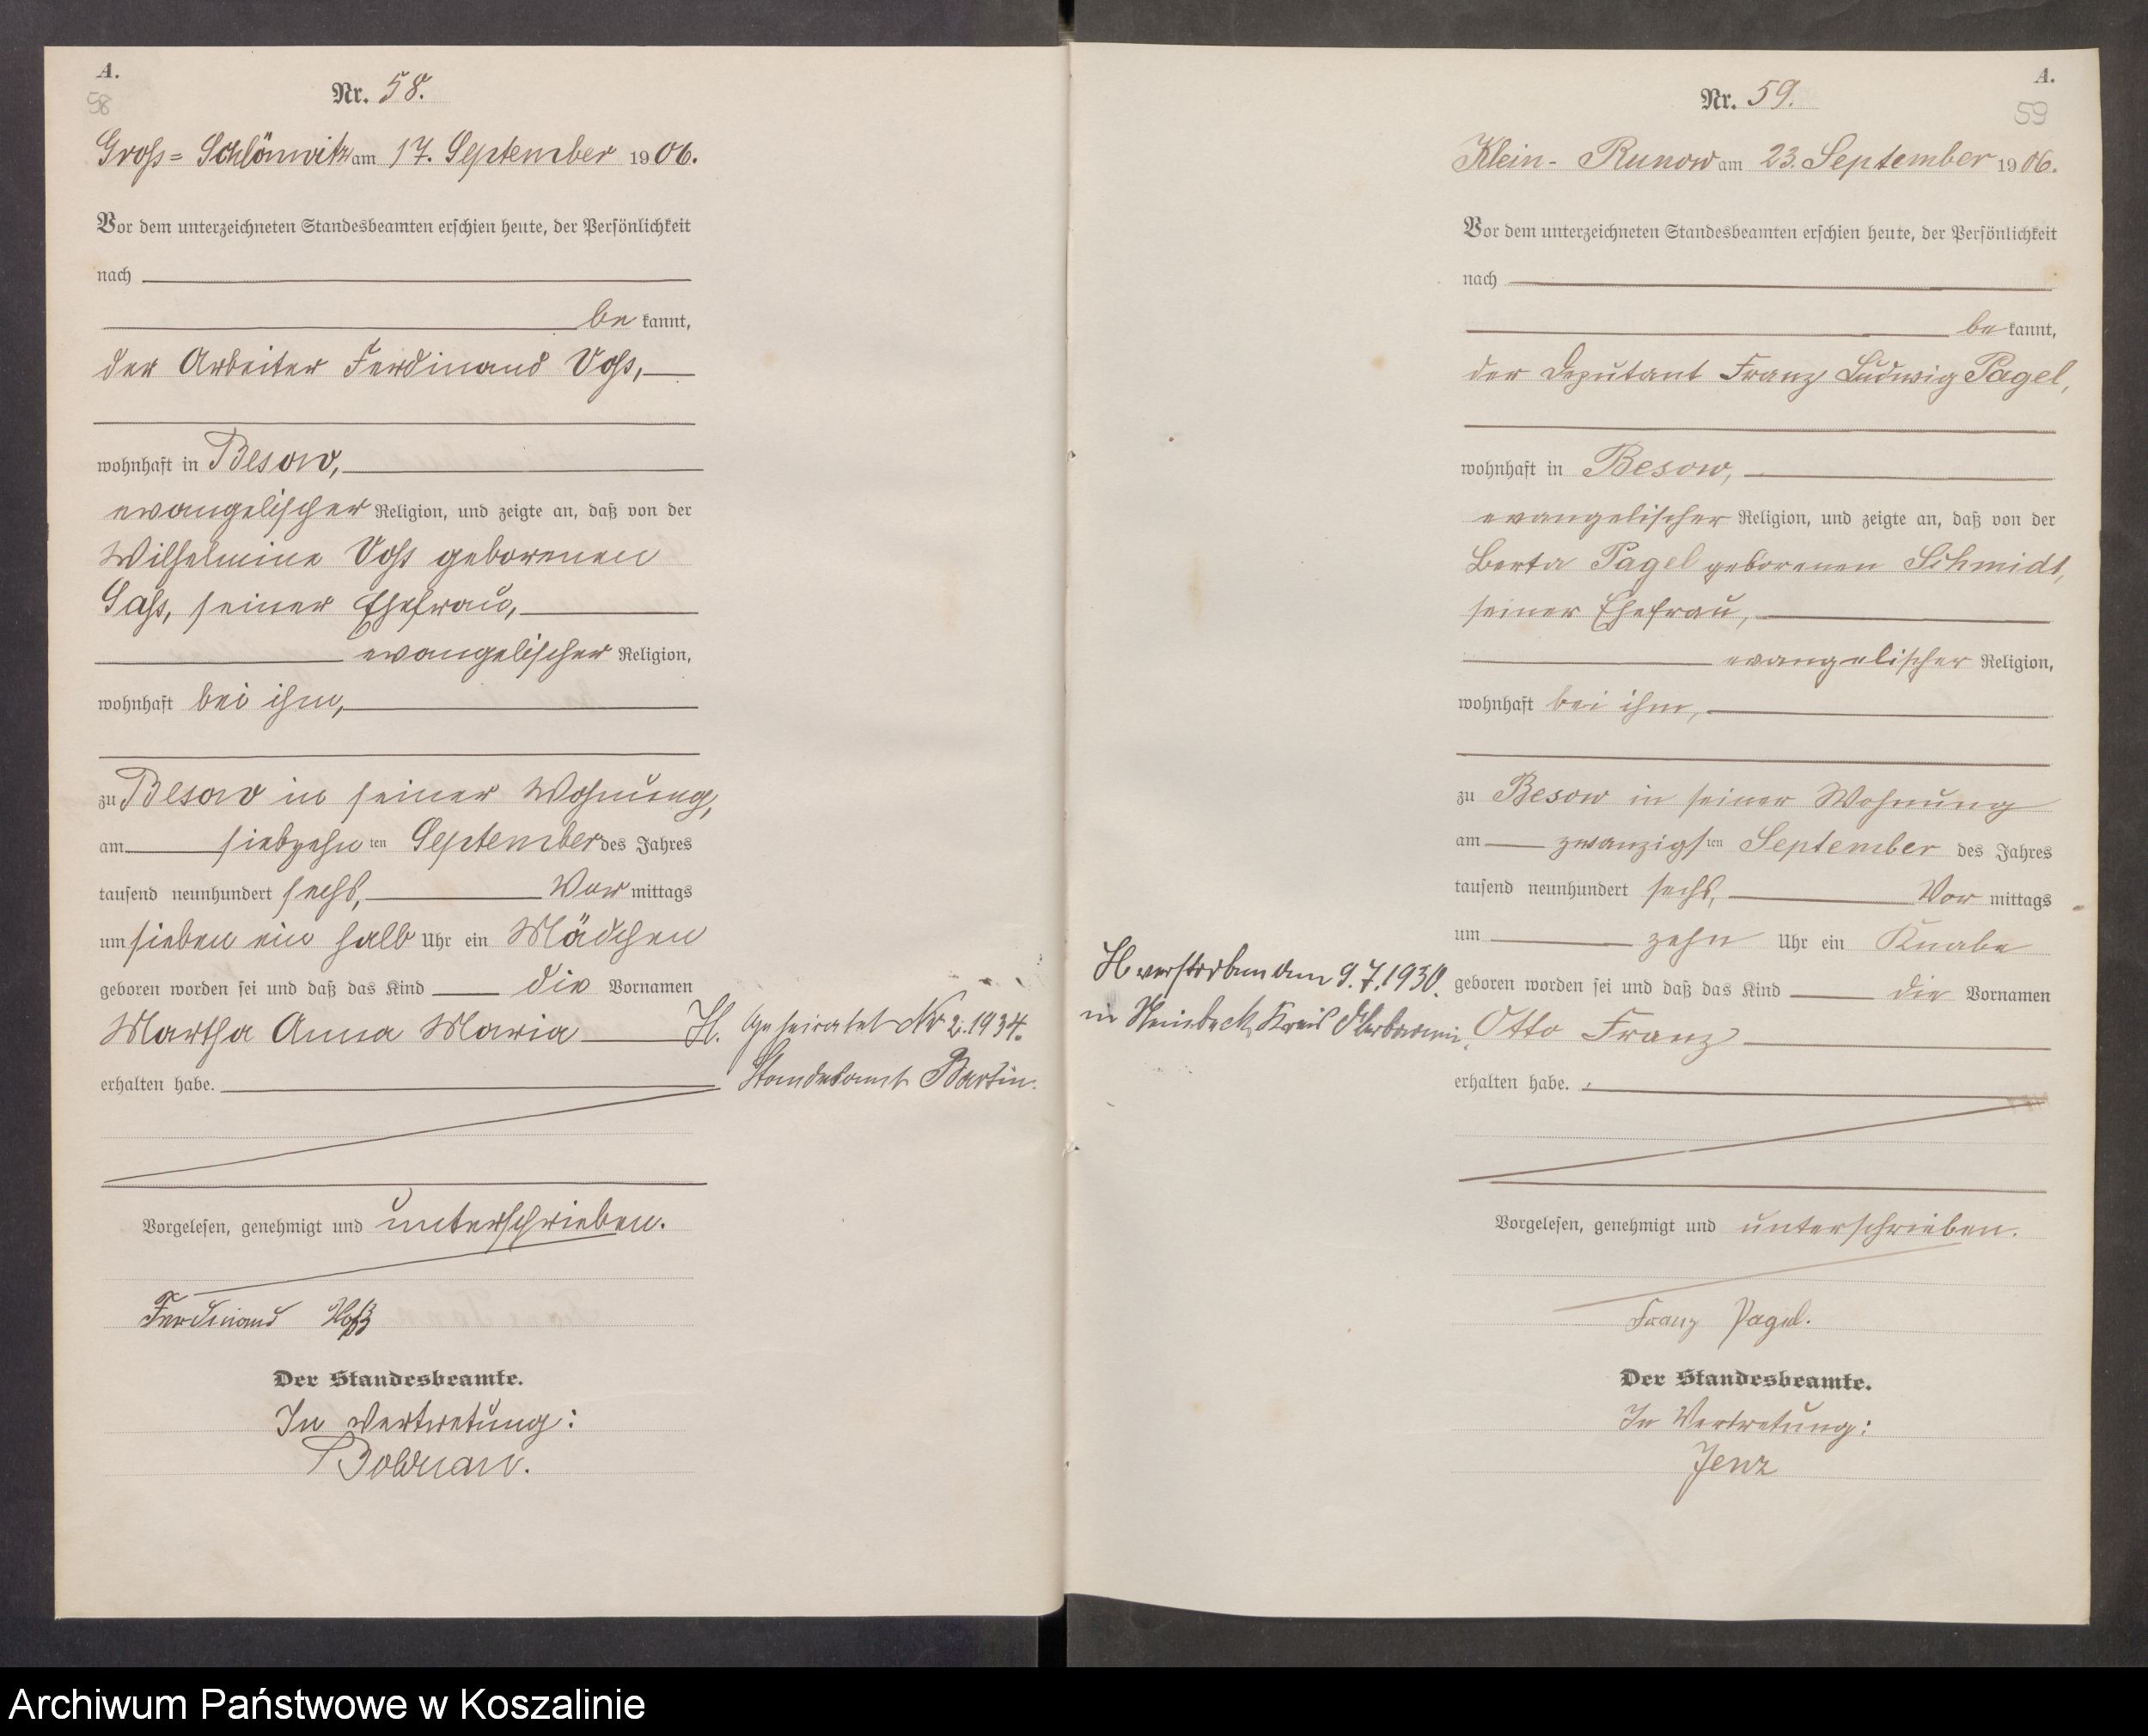 A.
58
Nr. 58.
Gross= Schlönwitz am 17. September 1906.
Vor dem unterzeichneten Standesbeamten erschien heute, der Persönlichkeit
nach
be kannt,
der Arbeiter Ferdinand Voss,
wohnhaft in Besow,
evangelischer Religion, und zeigte an, daß von der
Wilhelmine Voss geborenen
Sass, seiner Ehefrau,
evangelischer Religion,
wohnhaft bei ihm,
zu Besow in seiner Wohnung,
am siebzehn ten September des Jahres
tausend neunhundert sechs, Vor mittags
um sieben ein halb Uhr ein Mädchen
geboren worden sei und daß das Kind die Vornamen
Martha Anna Maria
erhalten habe.
H. Geheiratet Nr 2. 1934.
Standesamt Bartin.
Vorgelesen, genehmigt und unterschrieben.
Ferdinand Voß
Der Standesbeamte.
In Vertretung:
A.
59
Nr. 59.
Klein- Runow am 23. September 1906.
Vor dem unterzeichneten Standesbeamten erschien heute, der Persönlichkeit
nach
be kannt,
der Deputant Franz Ludwig Pagel,
wohnhaft in Besow,
evangelischer Religion, und zeigte an, daß von der
Berta Pagel geborenen Schmidt,
seiner Ehefrau,
evangelischer Religion,
wohnhaft bei ihm,
zu Besow in seiner Wohnung
am zwanzigs ten September des Jahres
tausend neunhundert sechs, Vor mittags
um zehn Uhr ein Knabe
geboren worden sei und daß das Kind die Vornamen
Otto Franz
erhalten habe.
H verstorben am 9.7.1930.
in Kreis
Vorgelesen, genehmigt und unterschrieben.
Franz Pagel.
Der Standesbeamte.
In Vertretung:
Jenz
Archiwum Państwowe w Koszalinie